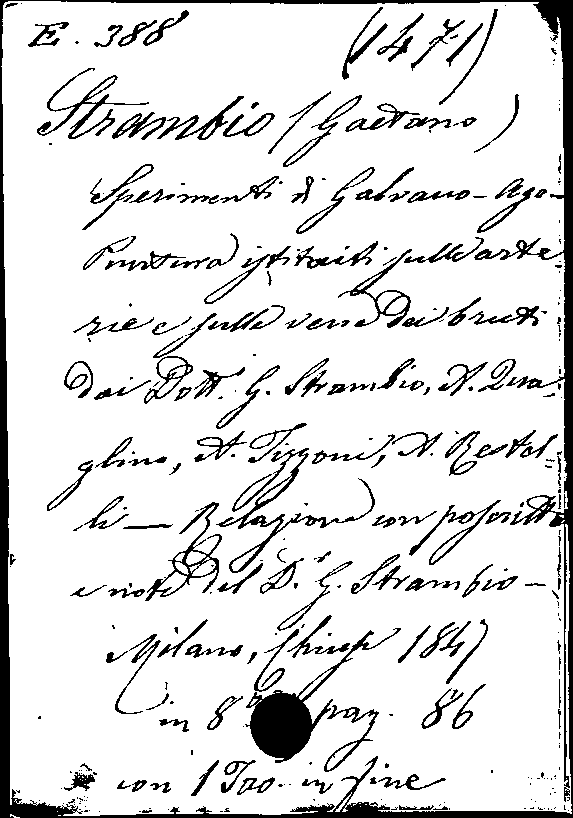 E. 388 (1471)
Strambio (Gaetano)
Sperimenti di Galvano-Ago-
Puntura istituiti sulle arte
rie e sulle vene dei bruti
dai Dott. G. Strambio, A. Qua-
glino, A. Tizzoni, A. Restel-
li — Relazione con poscritto
e note del D.r G. Strambio -
Milano, Chiusi 1847
in 8 pag. 86
con 1 Tav. in fine